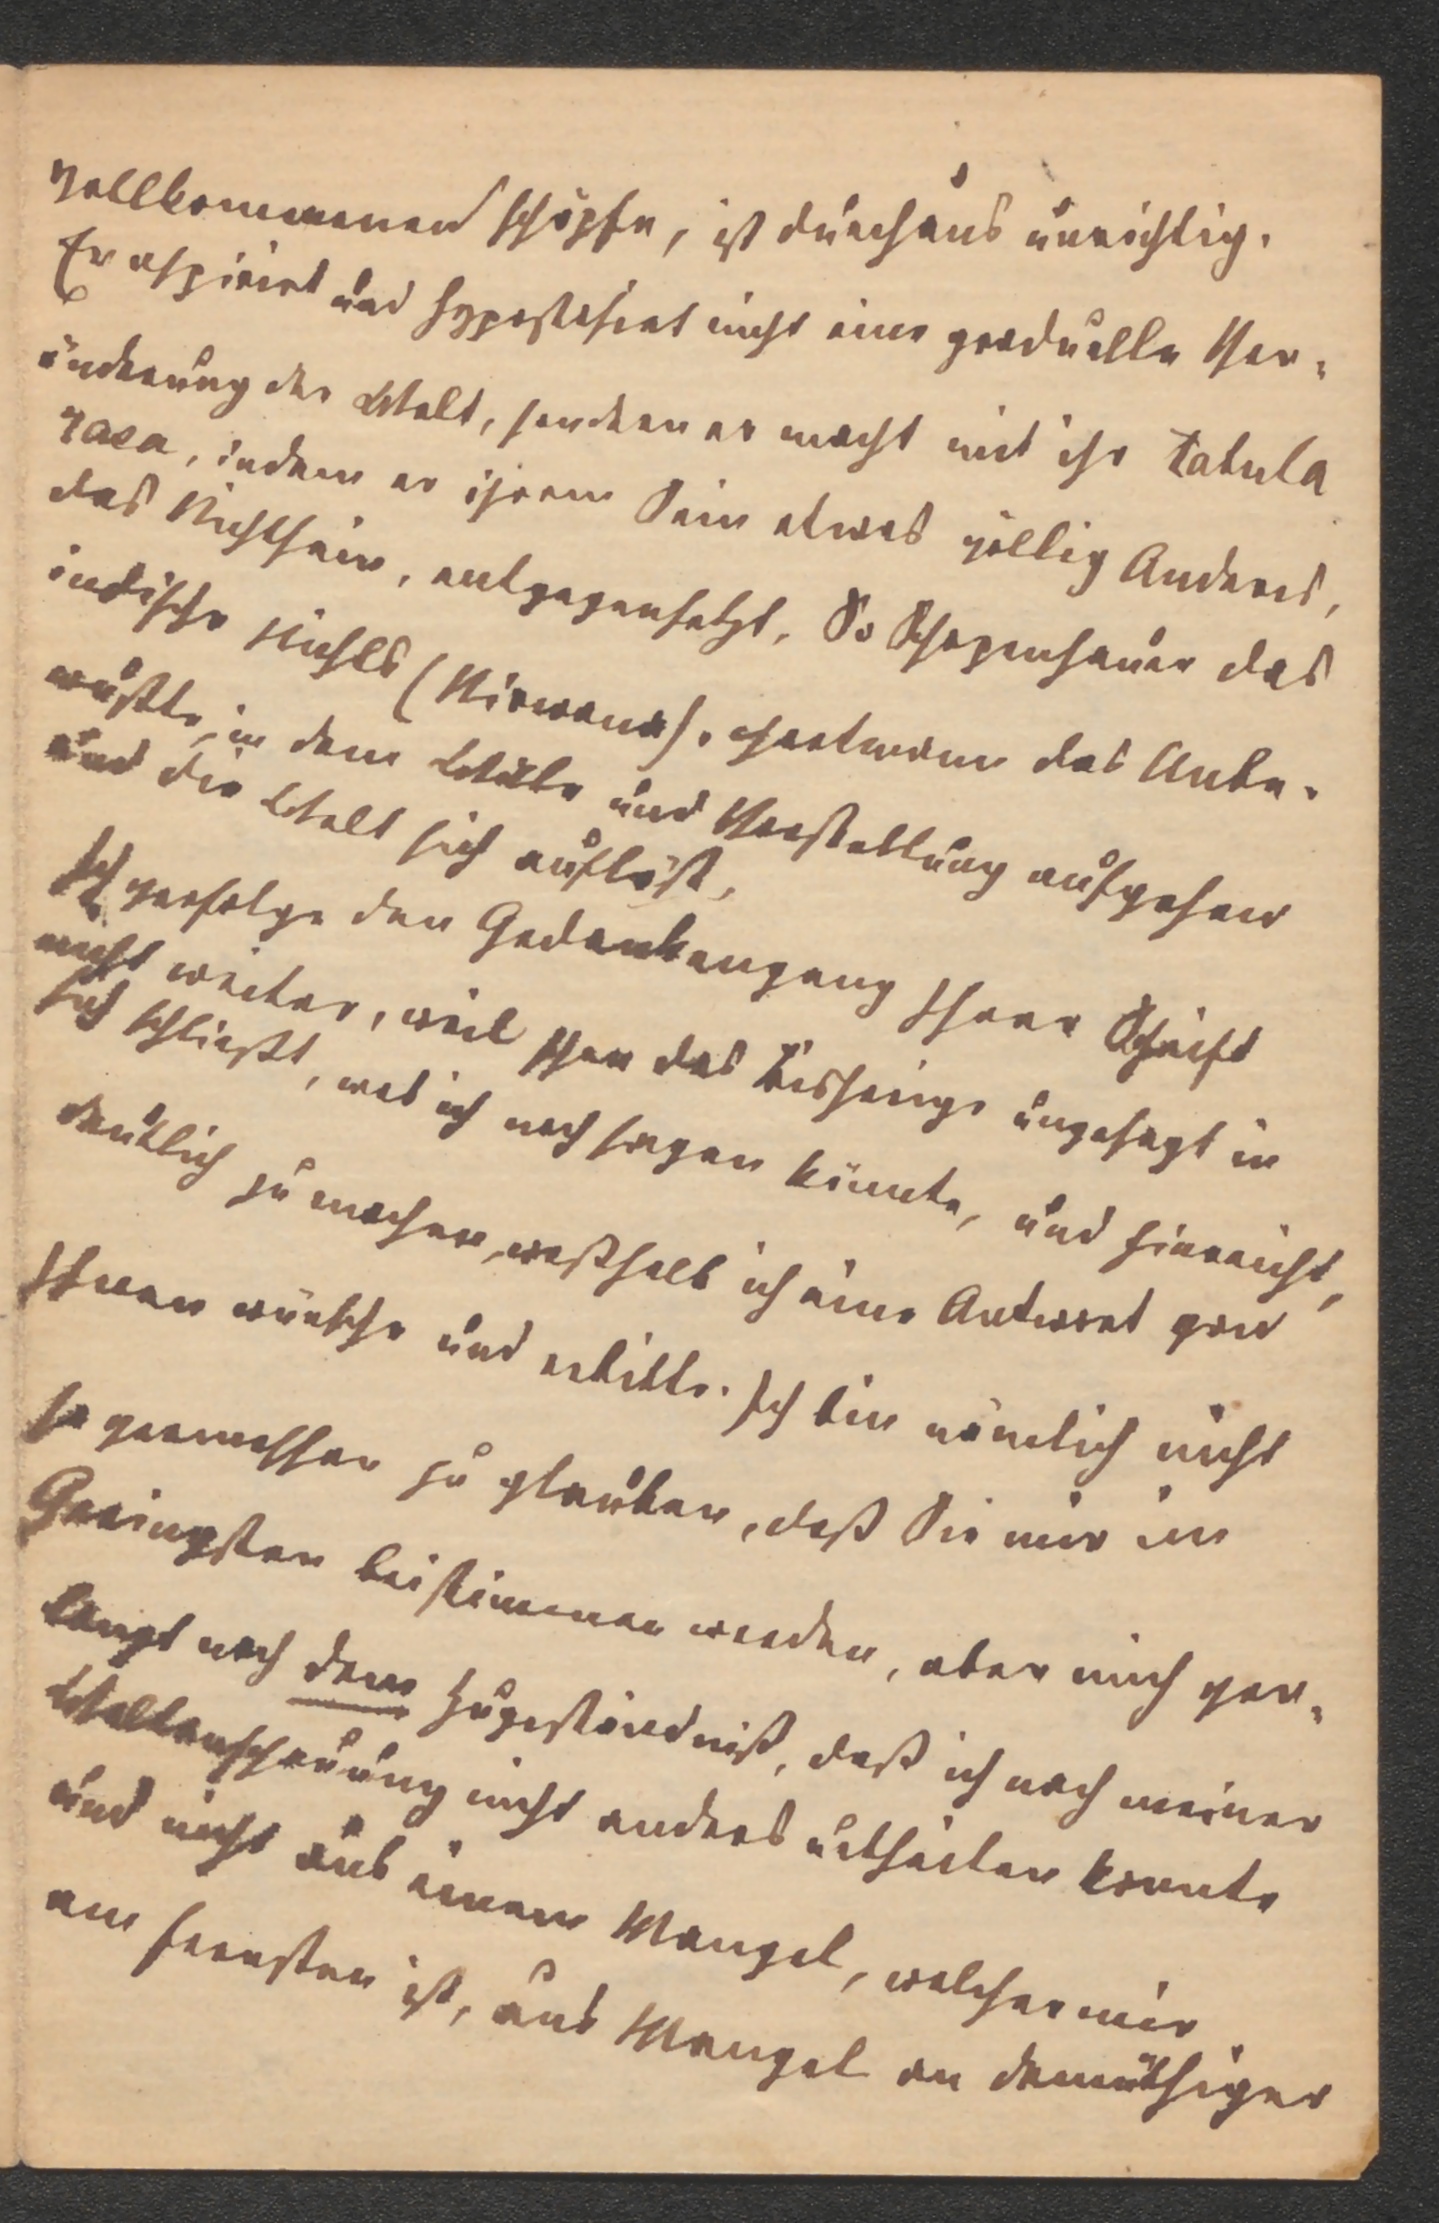 vollkommenen schöpfe, ist durchaus unrichtig.
Er aspirirt und hypostasirt nicht eine graduelle Ver-
änderung der Welt, sondern er macht mit ihr tabula
rasa, indem er ihrem Sein etwas völlig Anderes,
das Nichtsein, entgegensetzt. So Schopenhauer das
indische Nichts (Nirwana), Hartmann das Unbe-
wußte, in dem Wille und Vorstellung aufgehen
und die Welt sich auflöst.
Ich verfolge den Gedankengang Ihrer Schrift
nicht weiter, weil schon das Bisherige ungesagt in
sich schließt, was ich noch sagen könnte, und hinreicht,
deutlich zu machen, weßhalb ich eine Antwort von
Ihnen wünsche und erbitte. Ich bin nämlich nicht
so vermessen zu glauben, daß Sie mir im
Geringsten beistimmen werden, aber mich ver-
langt nach dem Zugeständniß, daß ich nach meiner
Weltanschauung nicht anders urtheilen konnte
und nicht aus einem Mangel, welcher mir
am fernsten ist, aus Mangel an demüthiger